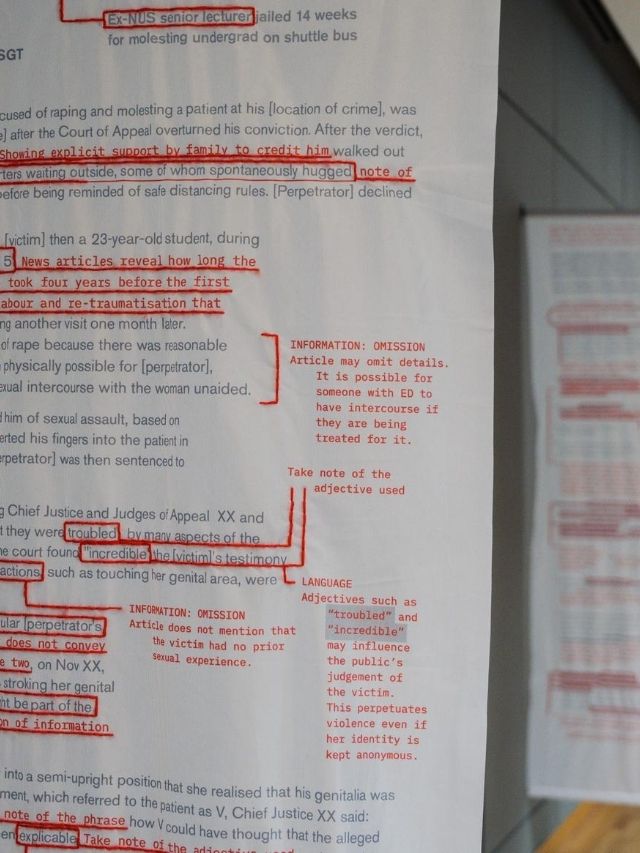 Ex-NUS senior lecturer jailed 14 weeks
for molesting undergrad on shuttle bus
SGT
cused of raping and molesting a patient at his [location of crime], was
e] after the Court of Appeal overturned his conviction. After the verdict,
Showing explicit support by family to credit him walked out
ters waiting outside, some of whom spontaneously hugged note of
efore being reminded of safe distancing rules. [Perpetrator] declined
[victim] then a 23-year-old student, during
5 News articles reveal how long the
took four years before the first
abour and re-traumatisation that
ng another visit one month later.
of rape because there was reasonable
physically possible for [perpetrator],
exual intercourse with the woman unaided.
INFORMATION: OMISSION
Article may omit details.
It is possible for
someone with ED to
have intercourse if
they are being
treated for it.
him of sexual assault, based on
erted his fingers into the patient in
erpetrator] was then sentenced to
Take note of the
adjective used
g Chief Justice and Judges of Appeal XX and
t they were troubled by many aspects of the
he court found "incredible the [victim]'s testimony
actions, such as touching her genital area, were
LANGUAGE
Adjectives such as
"troubled" and
"incredible"
may influence
the public's
judgement of
the victim.
This perpetuates
violence even if
her identity is
kept anonymous.
INFORMATION: OMISSION
Article does not mention that
the victim had no prior
sexual experience.
ular [perpetrator's
does not convey
e two, on Nov XX,
stroking her genital
ht be part of the
on of information
into a semi-upright position that she realised that his genitalia was
ment, which referred to the patient as V, Chief Justice XX said:
note of the phrase how V could have thought that the alleged
en explicable Take note of the adjective used